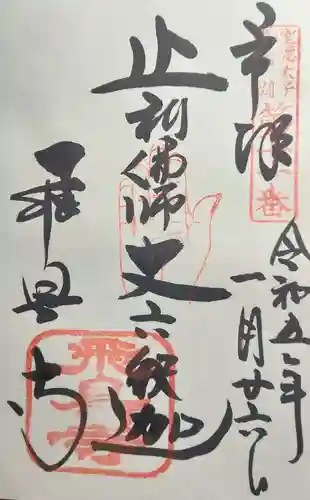 奉拝
令和五年
一月廿六日
止利佛師
丈六釈迦
飛鳥寺
飛鳥寺